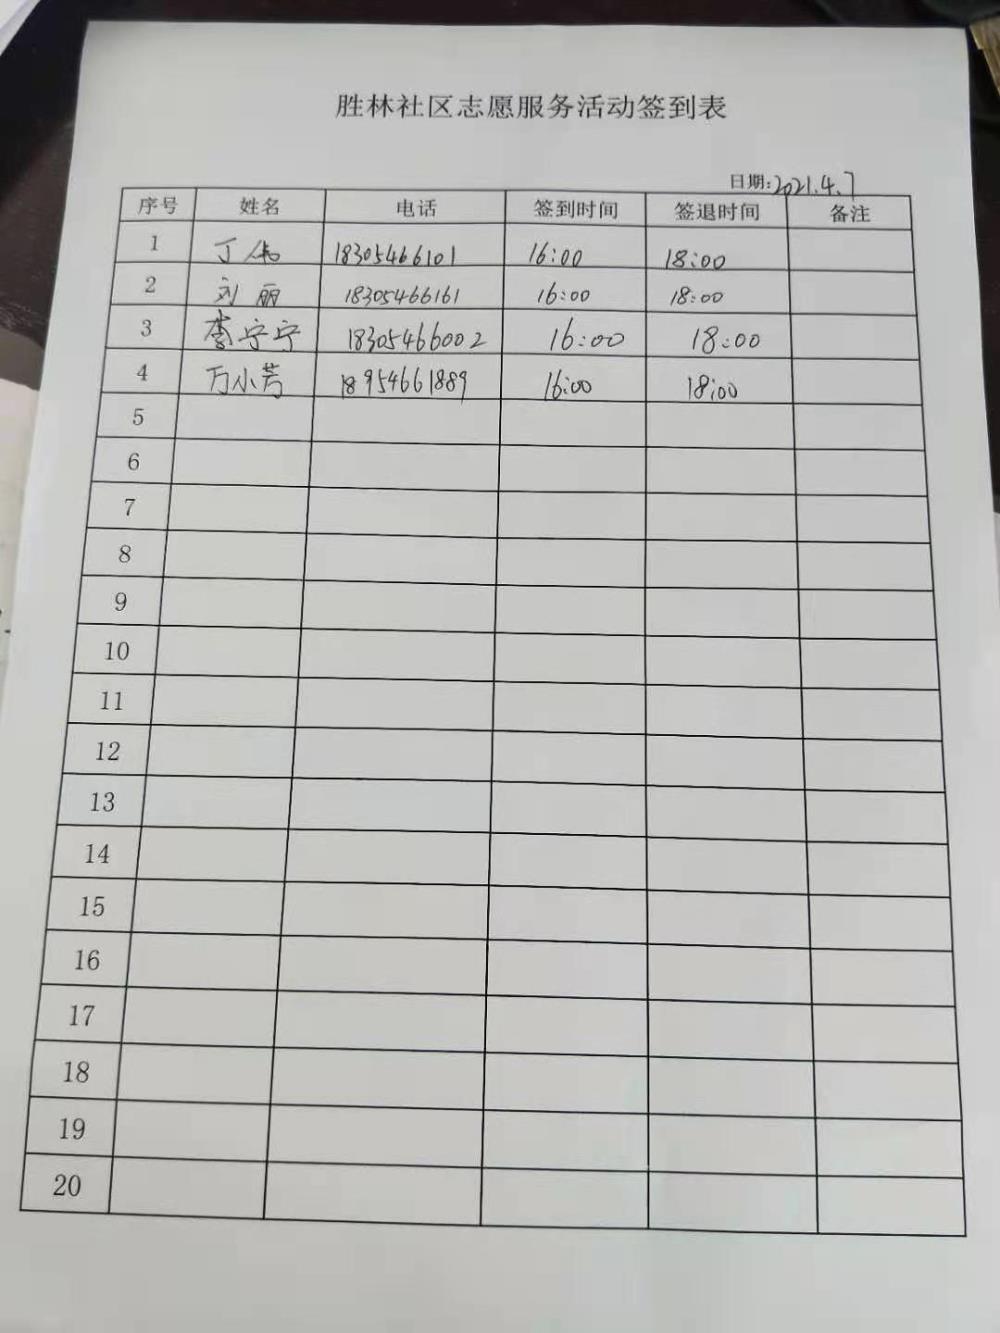 胜林社区志愿服务活动签到表
日期:2021.4.7
序号 姓名 电话 签到时间 签退时间 备注
1 丁伟 18305466101 16:00 18:00
2 刘丽 18305466161 16:00 18:00
3 李宁宁 18305466002 16:00 18:00
4 万小芳 18954661889 16:00 18:00
5
6
7
8
9
10
11
12
13
14
15
16
17
18
19
20